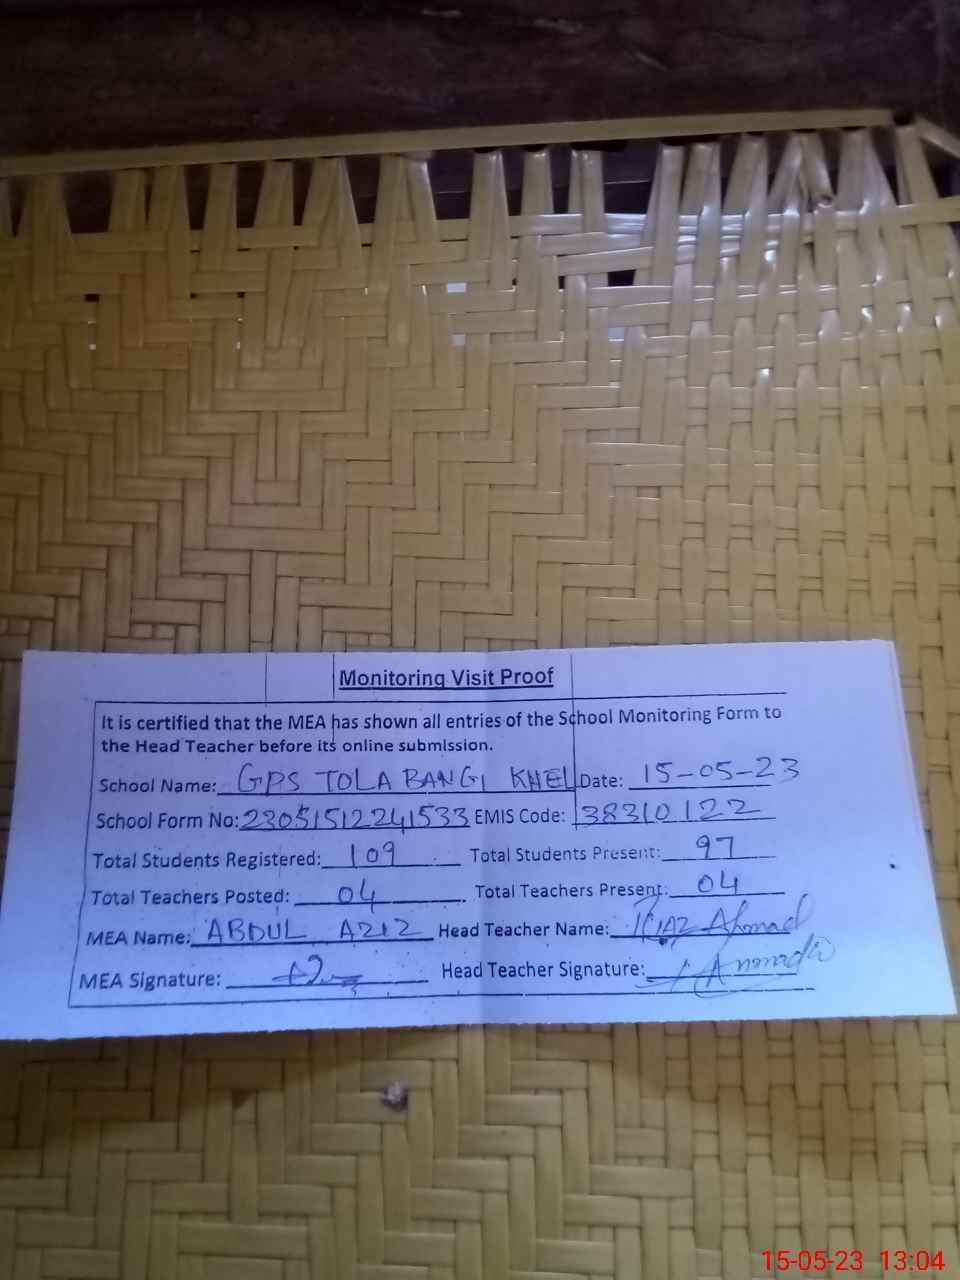 Monitoring Visit Proof
It is certified that the MEA has shown all entries of the School Monitoring Form to
the Head Teacher before its online submission.
School Name: GPS TOLA BANGI KHEL Date: 15-05-23
School Form No: 23051512241533 EMIS Code: 38310122
Total Students Registered: 109 Total Students Present: 97
Total Teachers Posted: 04 Total Teachers Present: 04
MEA Name: ABDUL AZIZ Head Teacher Name: Ahmad
MEA Signature: Head Teacher Signature:
15-05-23 13:04